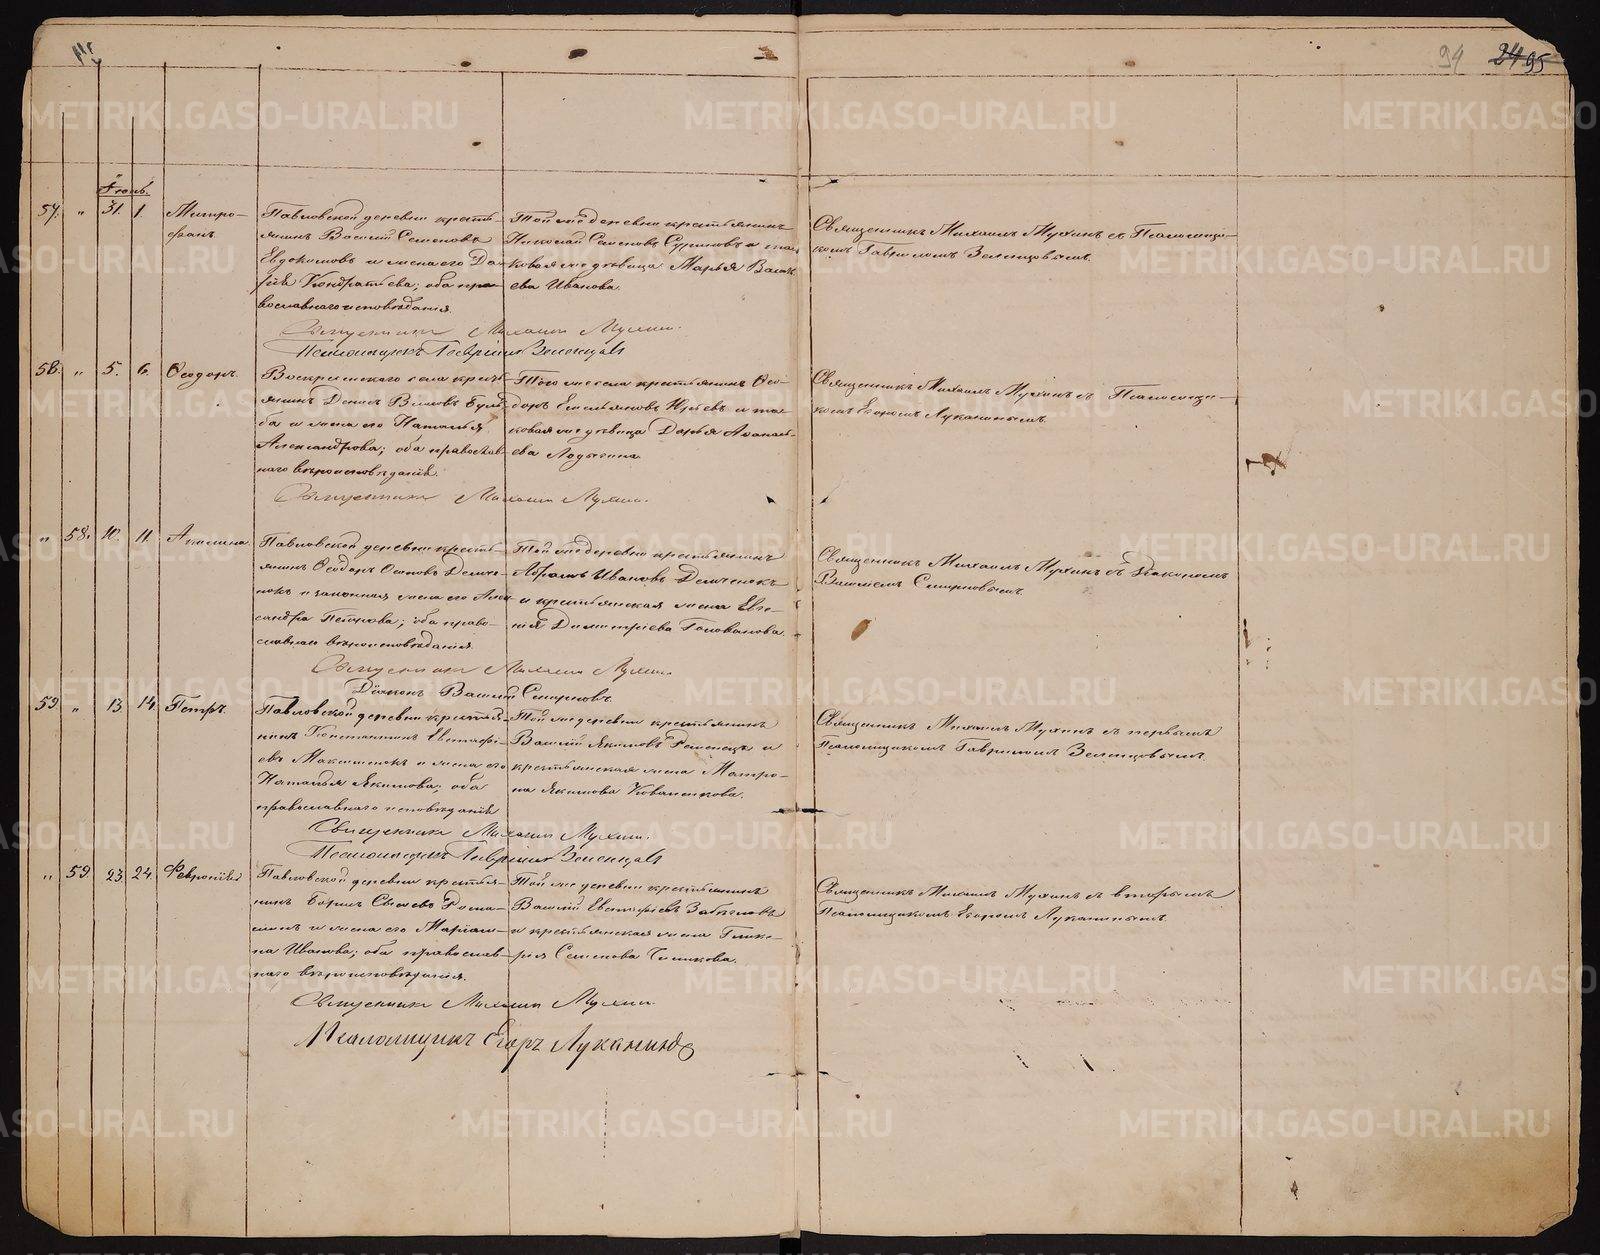 94 24 95
Іюнь.
57. " 31. 1. Митро-
фанъ.
Павловской деревни кресть-
янинъ Василій Семеновъ
Евдокимовъ и жена его Да-
рія Кондратьева; оба пра-
вославнаго исповѣданія.
Той же деревни крестьянинъ
Николай Семеновъ и та-
ковая же дѣвица Марья Василь-
ева Иванова.
Священникъ Михаилъ Мухинъ съ Псаломщи-
комъ Гавріиломъ Зеленцовымъ.
Священникъ Михаилъ Мухинъ.
Псаломщикъ Гавріилъ Зеленцовъ
58. " 5. 6. Ѳеодоръ.
Воскресенскаго села кресть-
янинъ Денисъ Власовъ
и жена его Наталья
Александрова; оба православ-
наго вѣроисповѣданія.
Того же села крестьянинъ Ѳео-
доръ Емельяновъ и та-
ковая же дѣвица Дарья Аѳанась-
ева Лодыгина.
Священникъ Михаилъ Мухинъ съ Псаломщи-
комъ Егоромъ Луканинымъ.
Священникъ Михаилъ Мухинъ.
" 58. 10. 11. Акилина.
Павловской деревни кресть-
янинъ Ѳеодоръ Осиповъ Демче-
нокъ и законная жена его Алек-
сандра Петрова; оба право-
славнаго вѣроисповѣданія.
Той же деревни крестьянинъ
Абрамъ Ивановъ Демченокъ
и крестьянская жена Евге-
нія Димитріева Голованова.
Священникъ Михаилъ Мухинъ съ Діакономъ
Василіемъ Смирновымъ.
Священникъ Михаилъ Мухинъ.
Діаконъ Василій Смирновъ.
59. " 13. 14. Петръ.
Павловской деревни крестья-
нинъ Константинъ Евстафі-
евъ Максименокъ и жена его
Наталья Якимова; оба
православнаго исповѣданія
Той же деревни крестьянинъ
Василій Якимовъ и
крестьянская жена Матро-
на Якимова Коваленкова.
Священникъ Михаилъ Мухинъ съ первымъ
Псаломщикомъ Гавріиломъ Зеленцовымъ.
Священникъ Михаилъ Мухинъ.
Псаломщикъ Гавріилъ Зеленцовъ
" 59. 23. 24. Февронія
Павловской деревни крестья-
нинъ Борисъ Рома-
и жена его Маріам-
на Иванова; оба православ-
наго вѣроисповѣданія.
Той же деревни крестьянинъ
Василій Евстафіевъ
и крестьянская жена Глике-
рія Семенова
Священникъ Михаилъ Мухинъ съ вторымъ
Псаломщикомъ Егоромъ Луканинымъ.
Священникъ Михаилъ Мухинъ.
Псаломщикъ Егоръ Луканинъ
METRIKI.GASO-URAL.RU